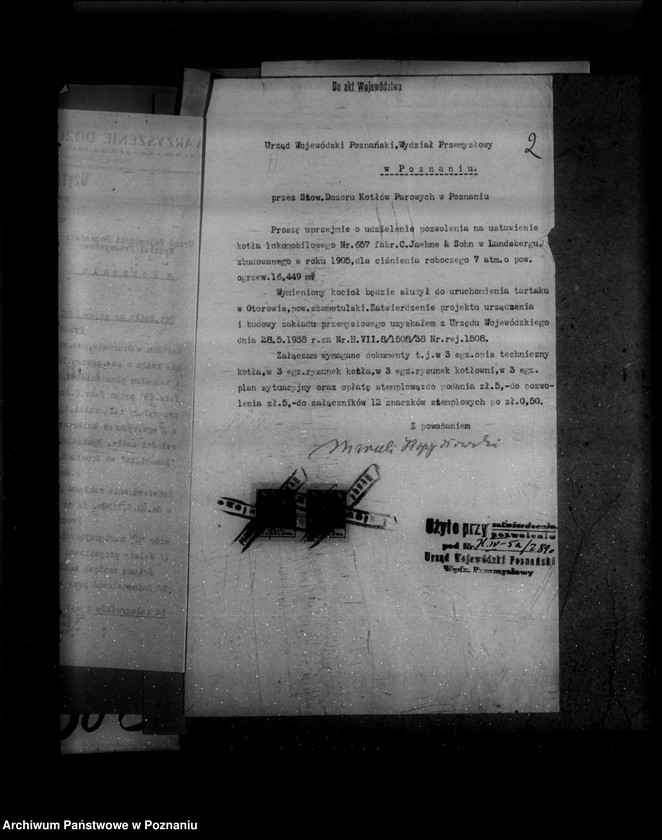 Do akt Województwa
2
Urząd Wojewódzki Poznański,Wydział Przemysłowy
w Poznaniu.
przez Stow.Dozoru Kotłów Parowych w Poznaniu
Proszę uprzejmie o udzielenie pozwolenia na ustawienie
kotła lokomobilowego Nr.657 fabr.C.Jaehne & Sohn w Landsbergu,
zbudowanego w roku 1905,dla ciśnienia roboczego 7 atm.o pow.
ogrzew.16,449 m²
Wymieniony kocioł będzie służył do uruchomienia tartaku
w Otorowie,pow.szamotulski.Zatwierdzenie projektu urządzenia
i budowy zakładu przemysłowego uzyskałem z Urzędu Wojewódzkiego
dnia 28.5.1938 r.za Nr.H.VII.8/1508/38 Nr.rej.1508.
Załączam wymagane dokumenty t.j.w 3 egz.opis techniczny
kotła,w 3 egz.rysunek kotła,w 3 egz.rysunek kotłowni,w 3 egz.
plan sytuacyjny oraz opłatę stemplową:do podania zł.5,-do pozwo-
lenia zł.5,-do załączników 12 znaczków stemplowych po zł.0,50.
Z poważaniem
Marceli
Użyto przy zatwierdzeniu
pozwoleniu
pod Nr.
Urząd Wojewódzki Poznański
Wydz. Przemysłowy
Archiwum Państwowe w Poznaniu